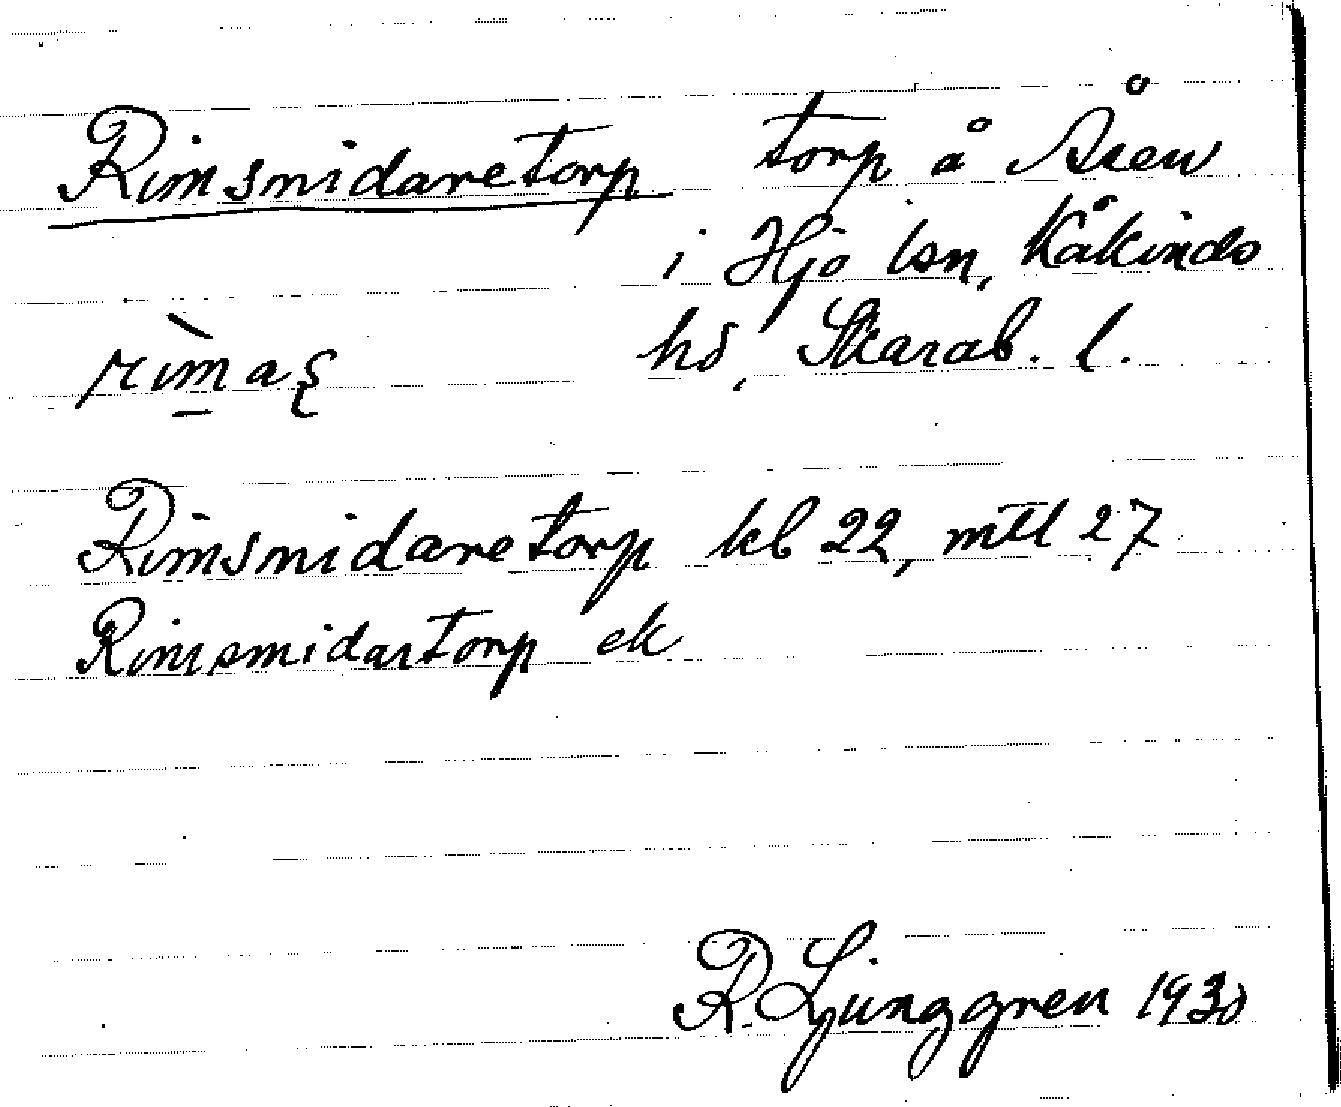 Rimsmidaretorp torp å Åsen
i Hjo lsn, Kåkinds
hd, Skarab. l.
Rimsmidaretorp kb 22, mtl 27
Rimsmidartorp ek
R. Ljunggren 1930